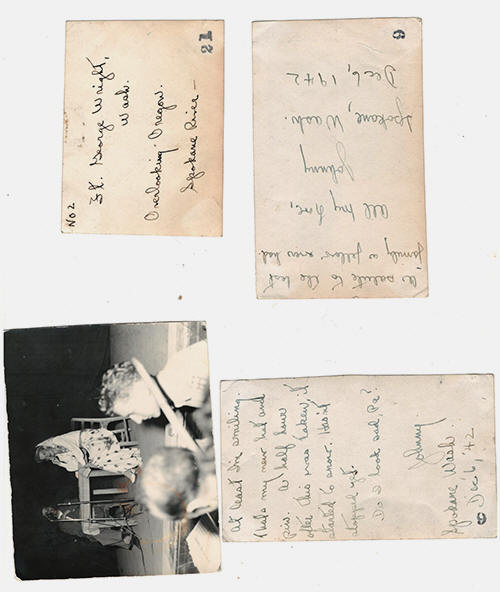 No 2
Ft. George Wright,
Wash.
Overlooking Oregon.
Spokane River —
21
A salute to the best
family a feller ever had
All my love,
Johnny
Spokane, Wash.
Dec 6, 1942
At least I'm smiling.
That's my new hat and
pin. A half hour
after this was taken, it
started to snow. Hasn't
stopped yet.
Do I look sad, Pa?
Johnny.
Spokane, Wash.
Dec 6, 42